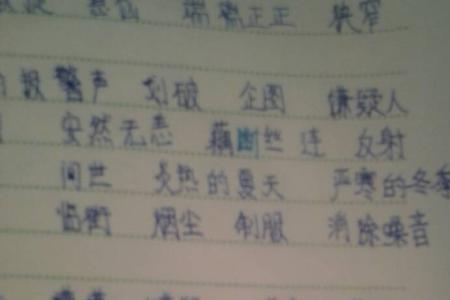 端端正正 狭窄
的报警声 划破 企图 嫌疑人
安然无恙 藕断丝连 反射
问世 炎热的夏天 严寒的冬季
临街 烟尘 制服 消除噪音